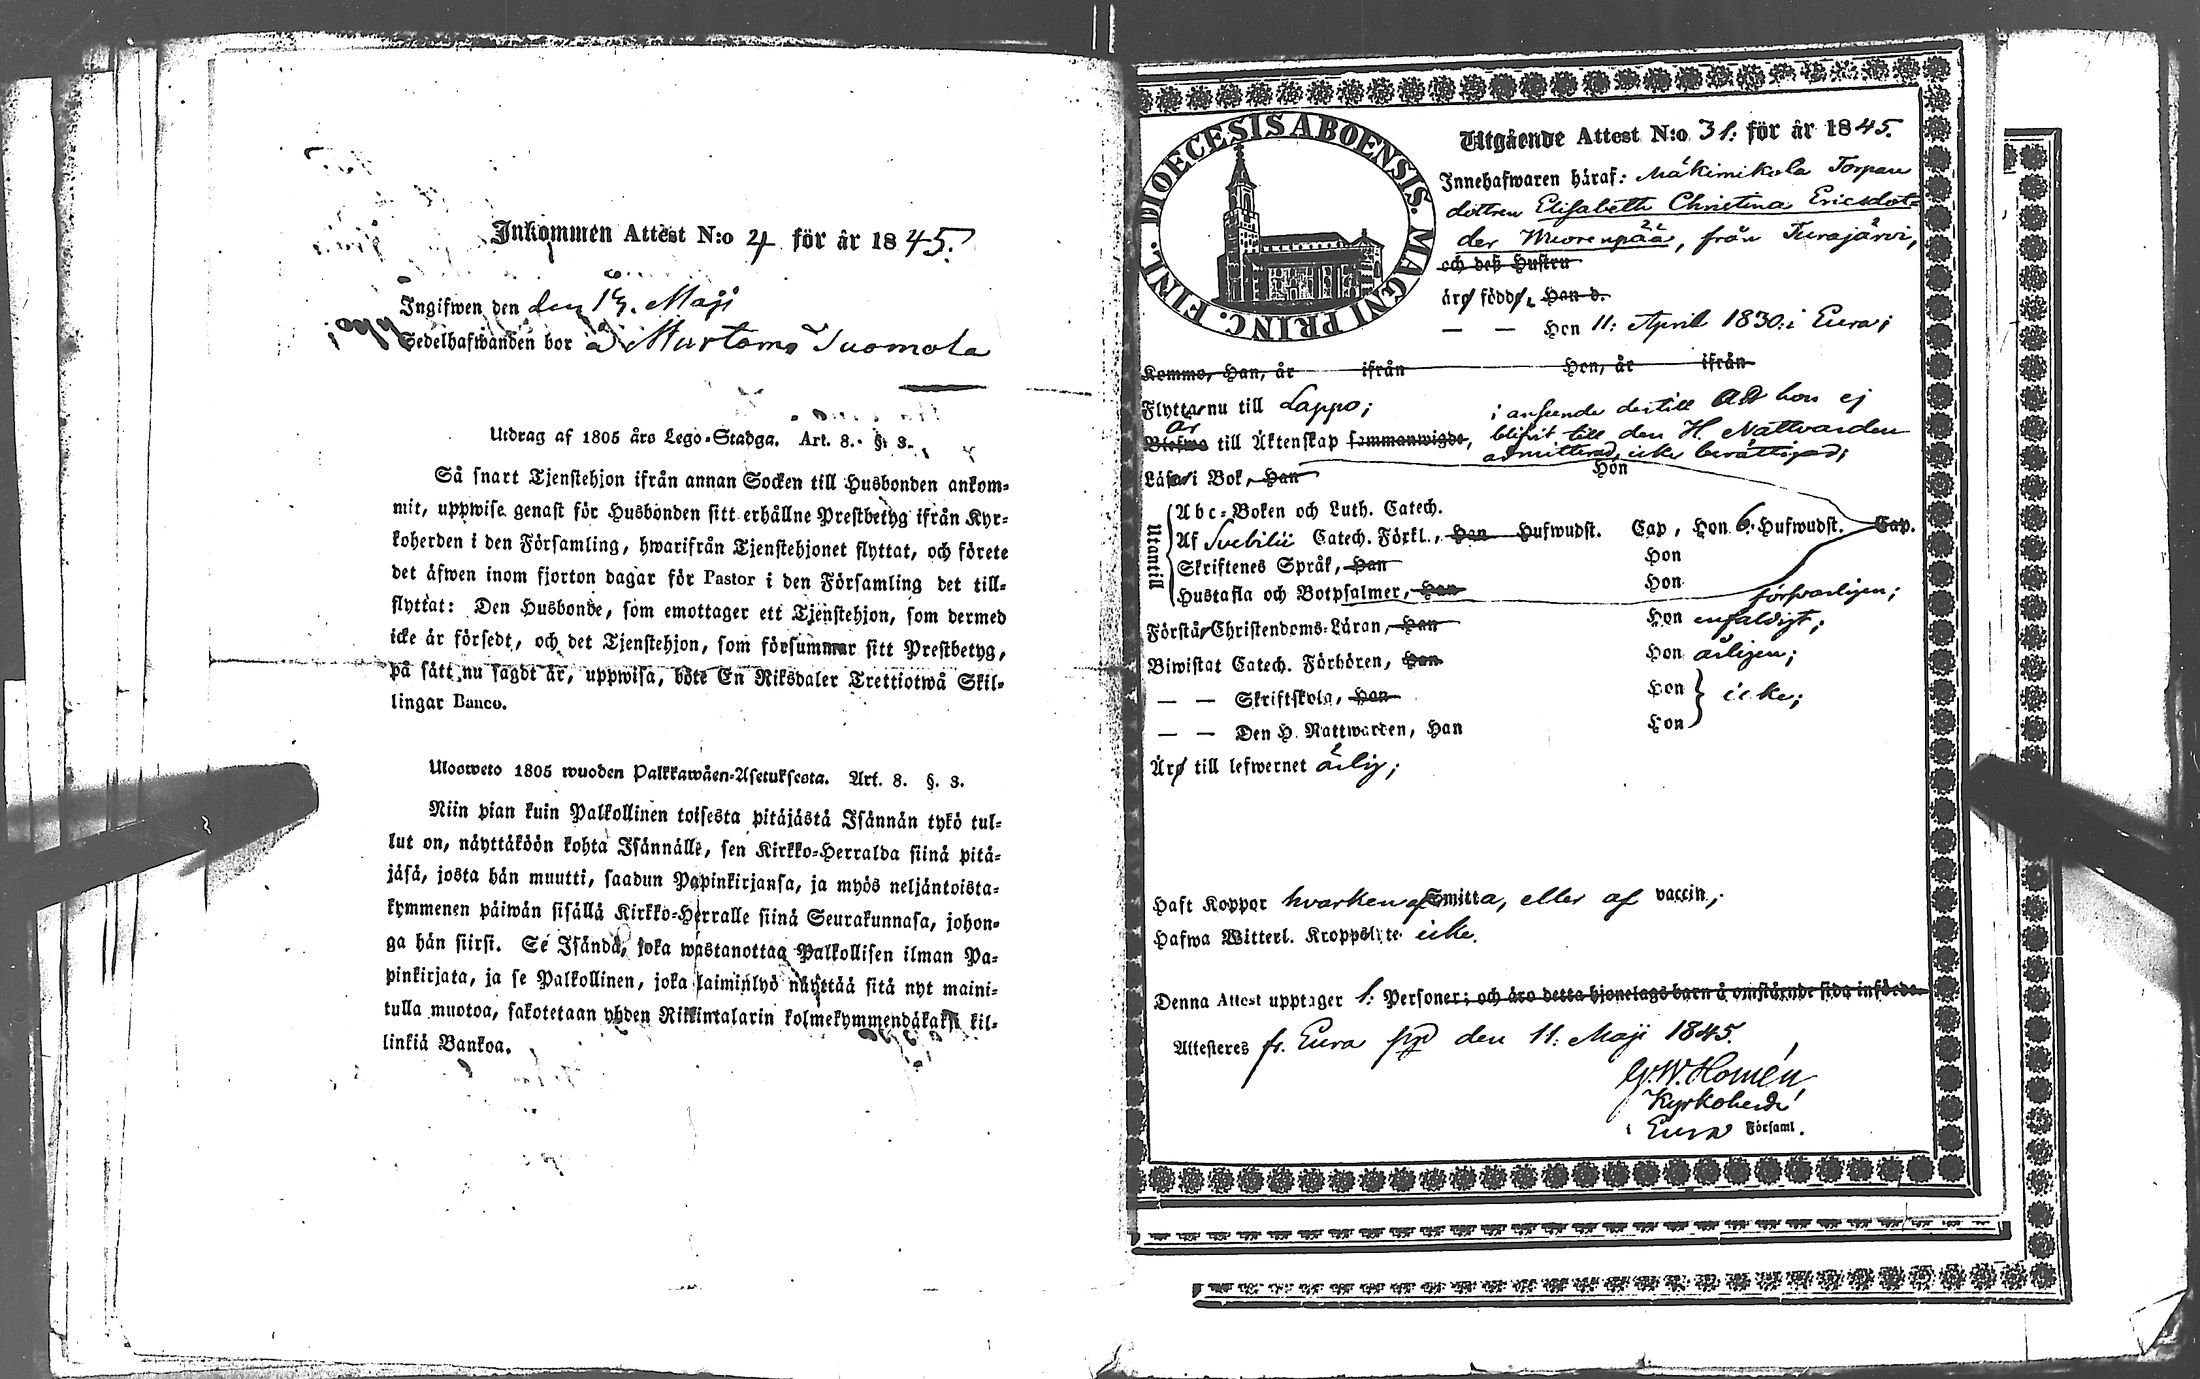 Inkommen Attest N:o 4 för år 1845.
Ingifwen den den 13. Maji
Sedelhafwanden bor å Murtamo Tuomola
Utdrag af 1805 års Lego-Stadga. Art. 8. §. 3.
Så snart Tjenstehjon ifrån annan Socken till Husbonden ankom-
mit, uppwise genast för Husbonden sitt erhållne Prestbetyg ifrån Kyr-
koherden i den Församling, hwarifrån Tjenstehjonet flyttat, och förete
det äfwen inom fjorton dagar för Pastor i den Församling det till-
flyttat: Den Husbonde, som emottager ett Tjenstehjon, som dermed
icke är försedt, och det Tjenstehjon, som försummar sitt Prestbetyg,
på sätt nu sagdt är, uppwisa, böte En Riksdaler Trettiotwå Skil-
lingar Banco.
Ulosweto 1805 wuoden Palkkawäen-Asetuksesta. Art. 8. §. 3.
Niin pian kuin Palkollinen toisesta pitäjästä Isännän tykö tul-
lut on, näyttäköön kohta Isännälle, sen Kirkko-Herralda siinä pitä-
jäsä, josta hän muutti, saadun Papinkirjansa, ja myös neljäntoista-
kymmenen päiwän sisällä Kirkko-Herralle siinä Seurakunnasa, johon-
ga hän siirsi. Se Isändä, joka wastanottaa Palkollisen ilman Pa-
pinkirjata, ja se Palkollinen, joka laiminlyö näyttää sitä nyt maini-
tulla muotoa, sakotetaan yhden Riikintalarin kolmekymmendäkaksi kil-
linkiä Bankoa.
DIOECESIS ABOENSIS. MAGNI PRINC. FINL.
Utgående Attest N:o 31. för år 1845.
Innehafwaren häraf: Mäkimikola Torpare
dottren Elisabeth Christina Ericsdot-
der Meorenpää, från Turajärvi,
och deß Hustru
äro född, Han d.
— — Hon 11: April 1830. i Eura;
Kommo, Han, år ifrån Hon, år ifrån
Flyttar nu till Lappo;
är
Blefwo till Äktenskap sammanwigde, i anseende dertill att hon ej
blifvit till den H. Nattvarden
admitterad, icke berättigad;
Läsa i Bok, Han Hon
Utantill
Abc-Boken och Luth. Catech.
Af Svebilii Catech. Förkl., Han Hufwudst. Cap, Hon 6. Hufwudst. Cap.
Skriftenes Språk, Han Hon
Hustafla och Botpsalmer, Han Hon försvarligen;
Förstå Christendoms-Läran, Han Hon enfaldigt;
Biwistat Catech. Förhören, Han Hon årligen;
— — Skriftskola, Han Hon
icke;
— — Den H. Nattwarden, Han Hon
Äro till lefwernet ärlig;
Haft Koppor hvarken af Smitta, eller af vaccin;
Hafwa Witterl. Kroppslyte icke.
Denna Attest upptager 1. Personer; och äro detta hjonelags barn å omstående sida införde.
Attesteres fr. Eura den 11. Maji 1845.
G. W. Homén,
Kyrkoherde
i Eura Församl.